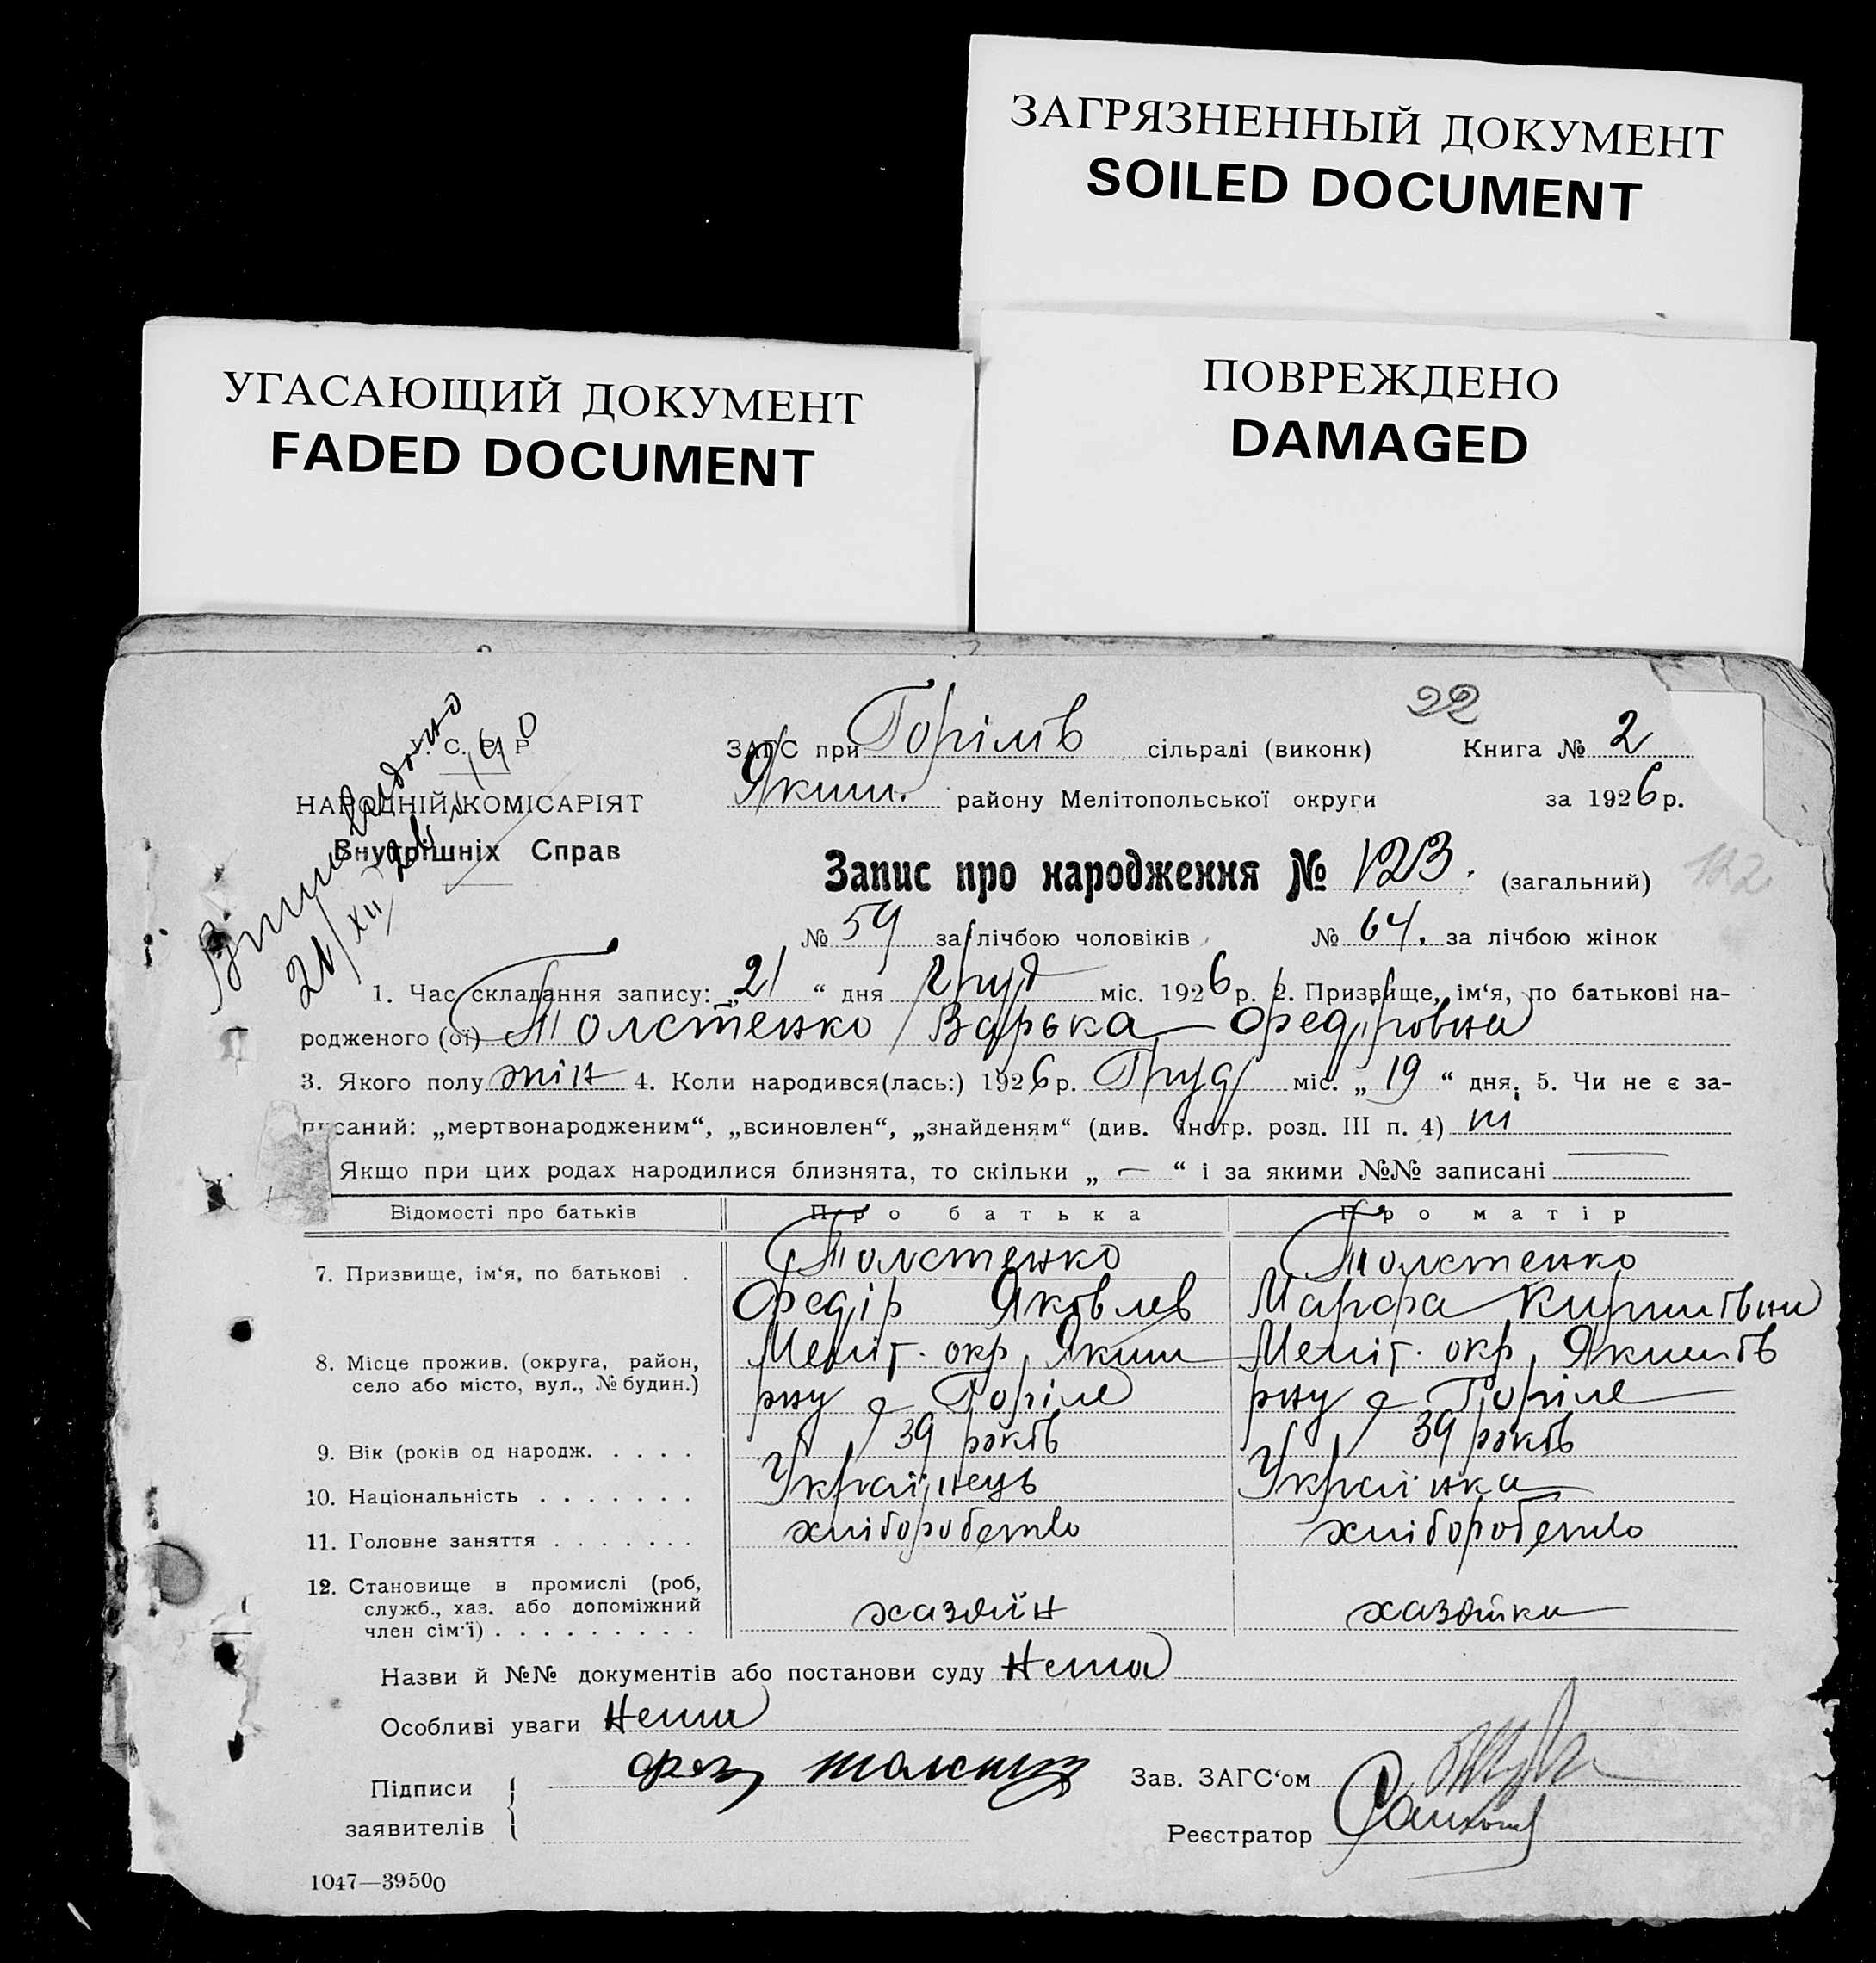 ЗАГРЯЗНЕННЫЙ ДОКУМЕНТ
SOILED DOCUMENT
УГАСАЮЩИЙ ДОКУМЕНТ
FADED DOCUMENT
ПОВРЕЖДЕНО
DAMAGED
22
У. С. Р. Р
НАРОДНІЙ КОМІСАРІЯТ
Внутрішніх Справ
21/XII 26
ЗАГС при Горілів сільраді (виконк) Книга № 2
Яким. району Мелітопольської округи за 1926 р.
Запис про народження № 123. (загальний)
122
№ 59 за лічбою чоловіків № 64. за лічбою жінок
1. Час складання запису: „21“ дня груд міс. 1926 р. 2. Призвище, ім‘я, по батькові на-
родженого (ої) Толстенко Варька Федіровна
3. Якого полу жін 4. Коли народився(лась:) 1926 р. Груд міс. „19“ дня. 5. Чи не є за-
писаний: „мертвонародженим“, „всиновлен“, „знайденям“ (див. інстр. розд. III п. 4) ні
Якщо при цих родах народилися близнята, то скільки „ — “ і за якими №№ записані —
Відомості про батьків Про батька Про матір
7. Призвище, ім‘я, по батькові . Толстенко Толстенко
Федір Яковлев Марфа Кирилівна
8. Місце прожив. (округа, район, Меліт. окр. Яким Меліт. окр. Якимів
село або місто, вул., № будин.) рну с Горіле рну с Горіле
9. Вік (років од народж. . . . . 39 років 39 років
10. Національність . . . . . . . Українець Українка
11. Головне заняття . . . . . . . хліборобство хліборобство
12. Становище в промислі (роб,
служб., хаз. або допоміжний хазяїн хазяйка
член сім‘ї) . . . . . . . . .
Назви й №№ документів або постанови суду Нема
Особливі уваги Нема
Підписи
заявителів
Зав. ЗАГС‘ом
Реєстратор
1047—39500